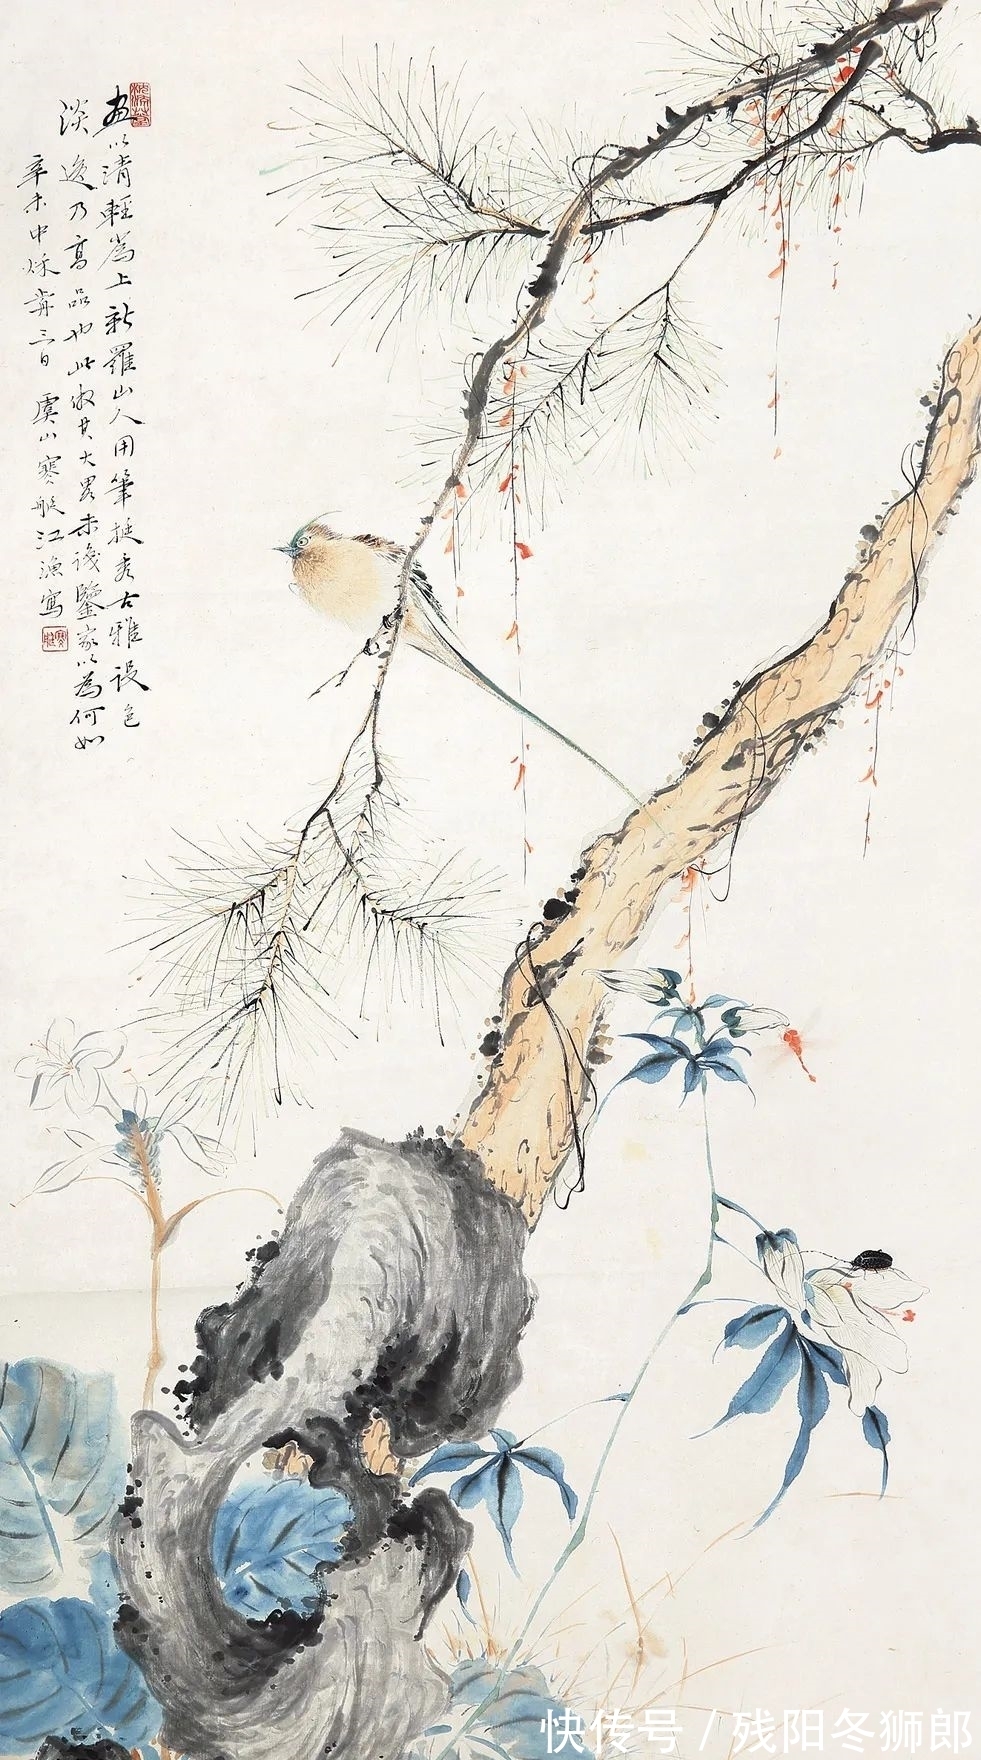 畫以清輕為上新羅山人用筆挺秀古雅設色
淡逸乃高品也此仿其大畧未識鑒家以為何如
辛未中秌歬三日 虞山寒艇江漁寫
快传号 / 残阳冬狮郎